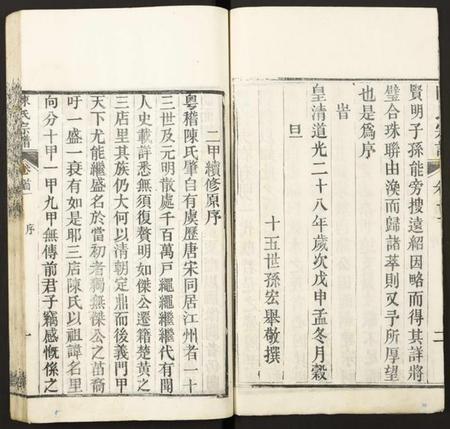 賢明子孫能旁搜遠紹因略而得其詳將
璧合珠聯由渙而歸諸萃則又予所厚望
也是為序
皇清道光二十八年歲次戊申孟冬月穀
旦
十五世孫宏舉敬撰
二甲續修原序
粵稽陳氏肇自有虞歷唐宋同居江州者一十
三世及元明散處千百萬戶繩繩繼繼代有聞
人史載詳悉無須復贅明如傑公遷籍楚黃之
三店里其族仍大何以清朝定鼎而後義門甲
天下尤能繼盛名於當初者獨無傑公之苗裔
吁一盛一衰有如是耶三店陳氏以祖諱名里
向分十甲一甲九甲無傳前君子竊感慨係之
陳氏宗譜
卷首
序
一